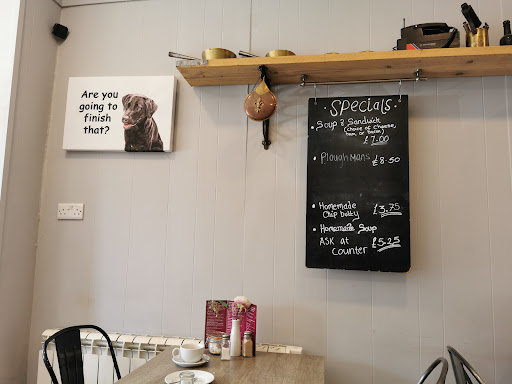 Are you
going to
finish
that?
SPECIALS.
• Soup & Sandwich
(choice of cheese,
ham or bacon)
£7.00
• Ploughmans £8.50
• Homemade
Chip butty £3.75
• Homemade Soup
ASK at £5.25
Counter